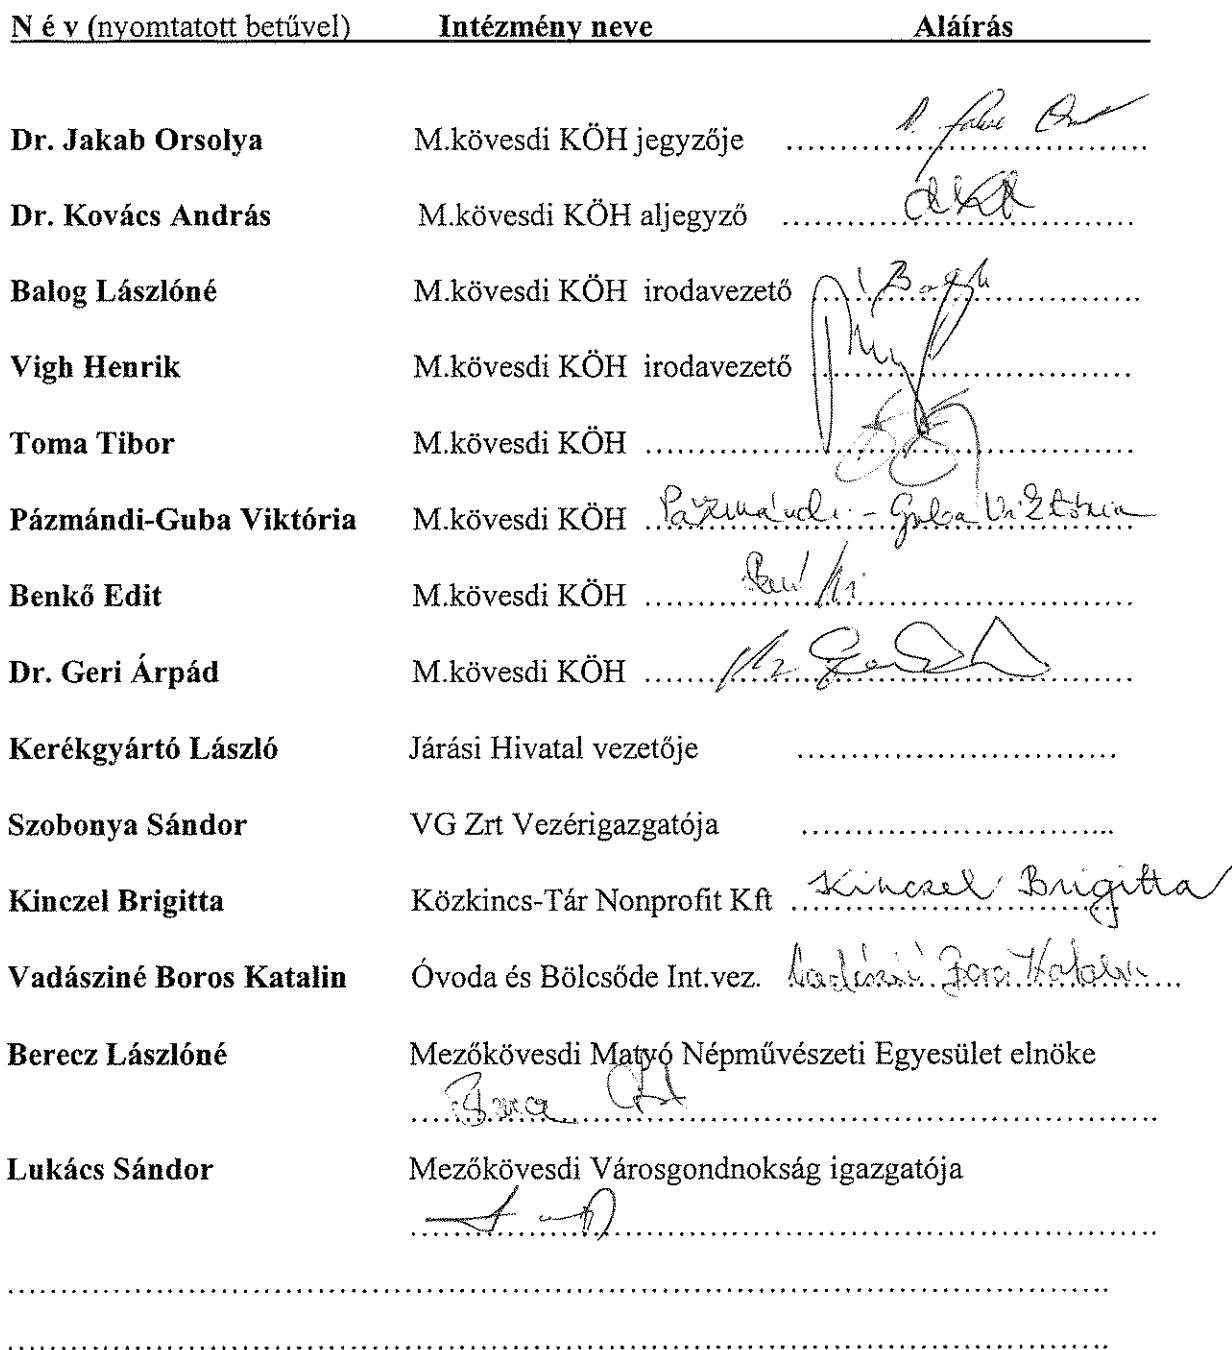 N é v (nyomtatott betűvel) Intézmény neve Aláírás
Dr. Jakab Orsolya M.kövesdi KÖH jegyzője ..................................
Dr. Kovács András M.kövesdi KÖH aljegyző ..................................
Balog Lászlóné M.kövesdi KÖH irodavezető ..............................
Vigh Henrik M.kövesdi KÖH irodavezető ..............................
Toma Tibor M.kövesdi KÖH ..............................................
Pázmándi-Guba Viktória M.kövesdi KÖH Pázmándi-Guba Viktória
Benkő Edit M.kövesdi KÖH ..............................................
Dr. Geri Árpád M.kövesdi KÖH ..............................................
Kerékgyártó László Járási Hivatal vezetője ..............................
Szobonya Sándor VG Zrt Vezérigazgatója ..............................
Kinczel Brigitta Közkincs-Tár Nonprofit Kft Kinczel Brigitta
Vadásziné Boros Katalin Óvoda és Bölcsőde Int.vez. Vadásziné Boros Katalin
Berecz Lászlóné Mezőkövesdi Matyó Népművészeti Egyesület elnöke
......................................................................
Lukács Sándor Mezőkövesdi Városgondnokság igazgatója
......................................................................
........................................................................................................
........................................................................................................